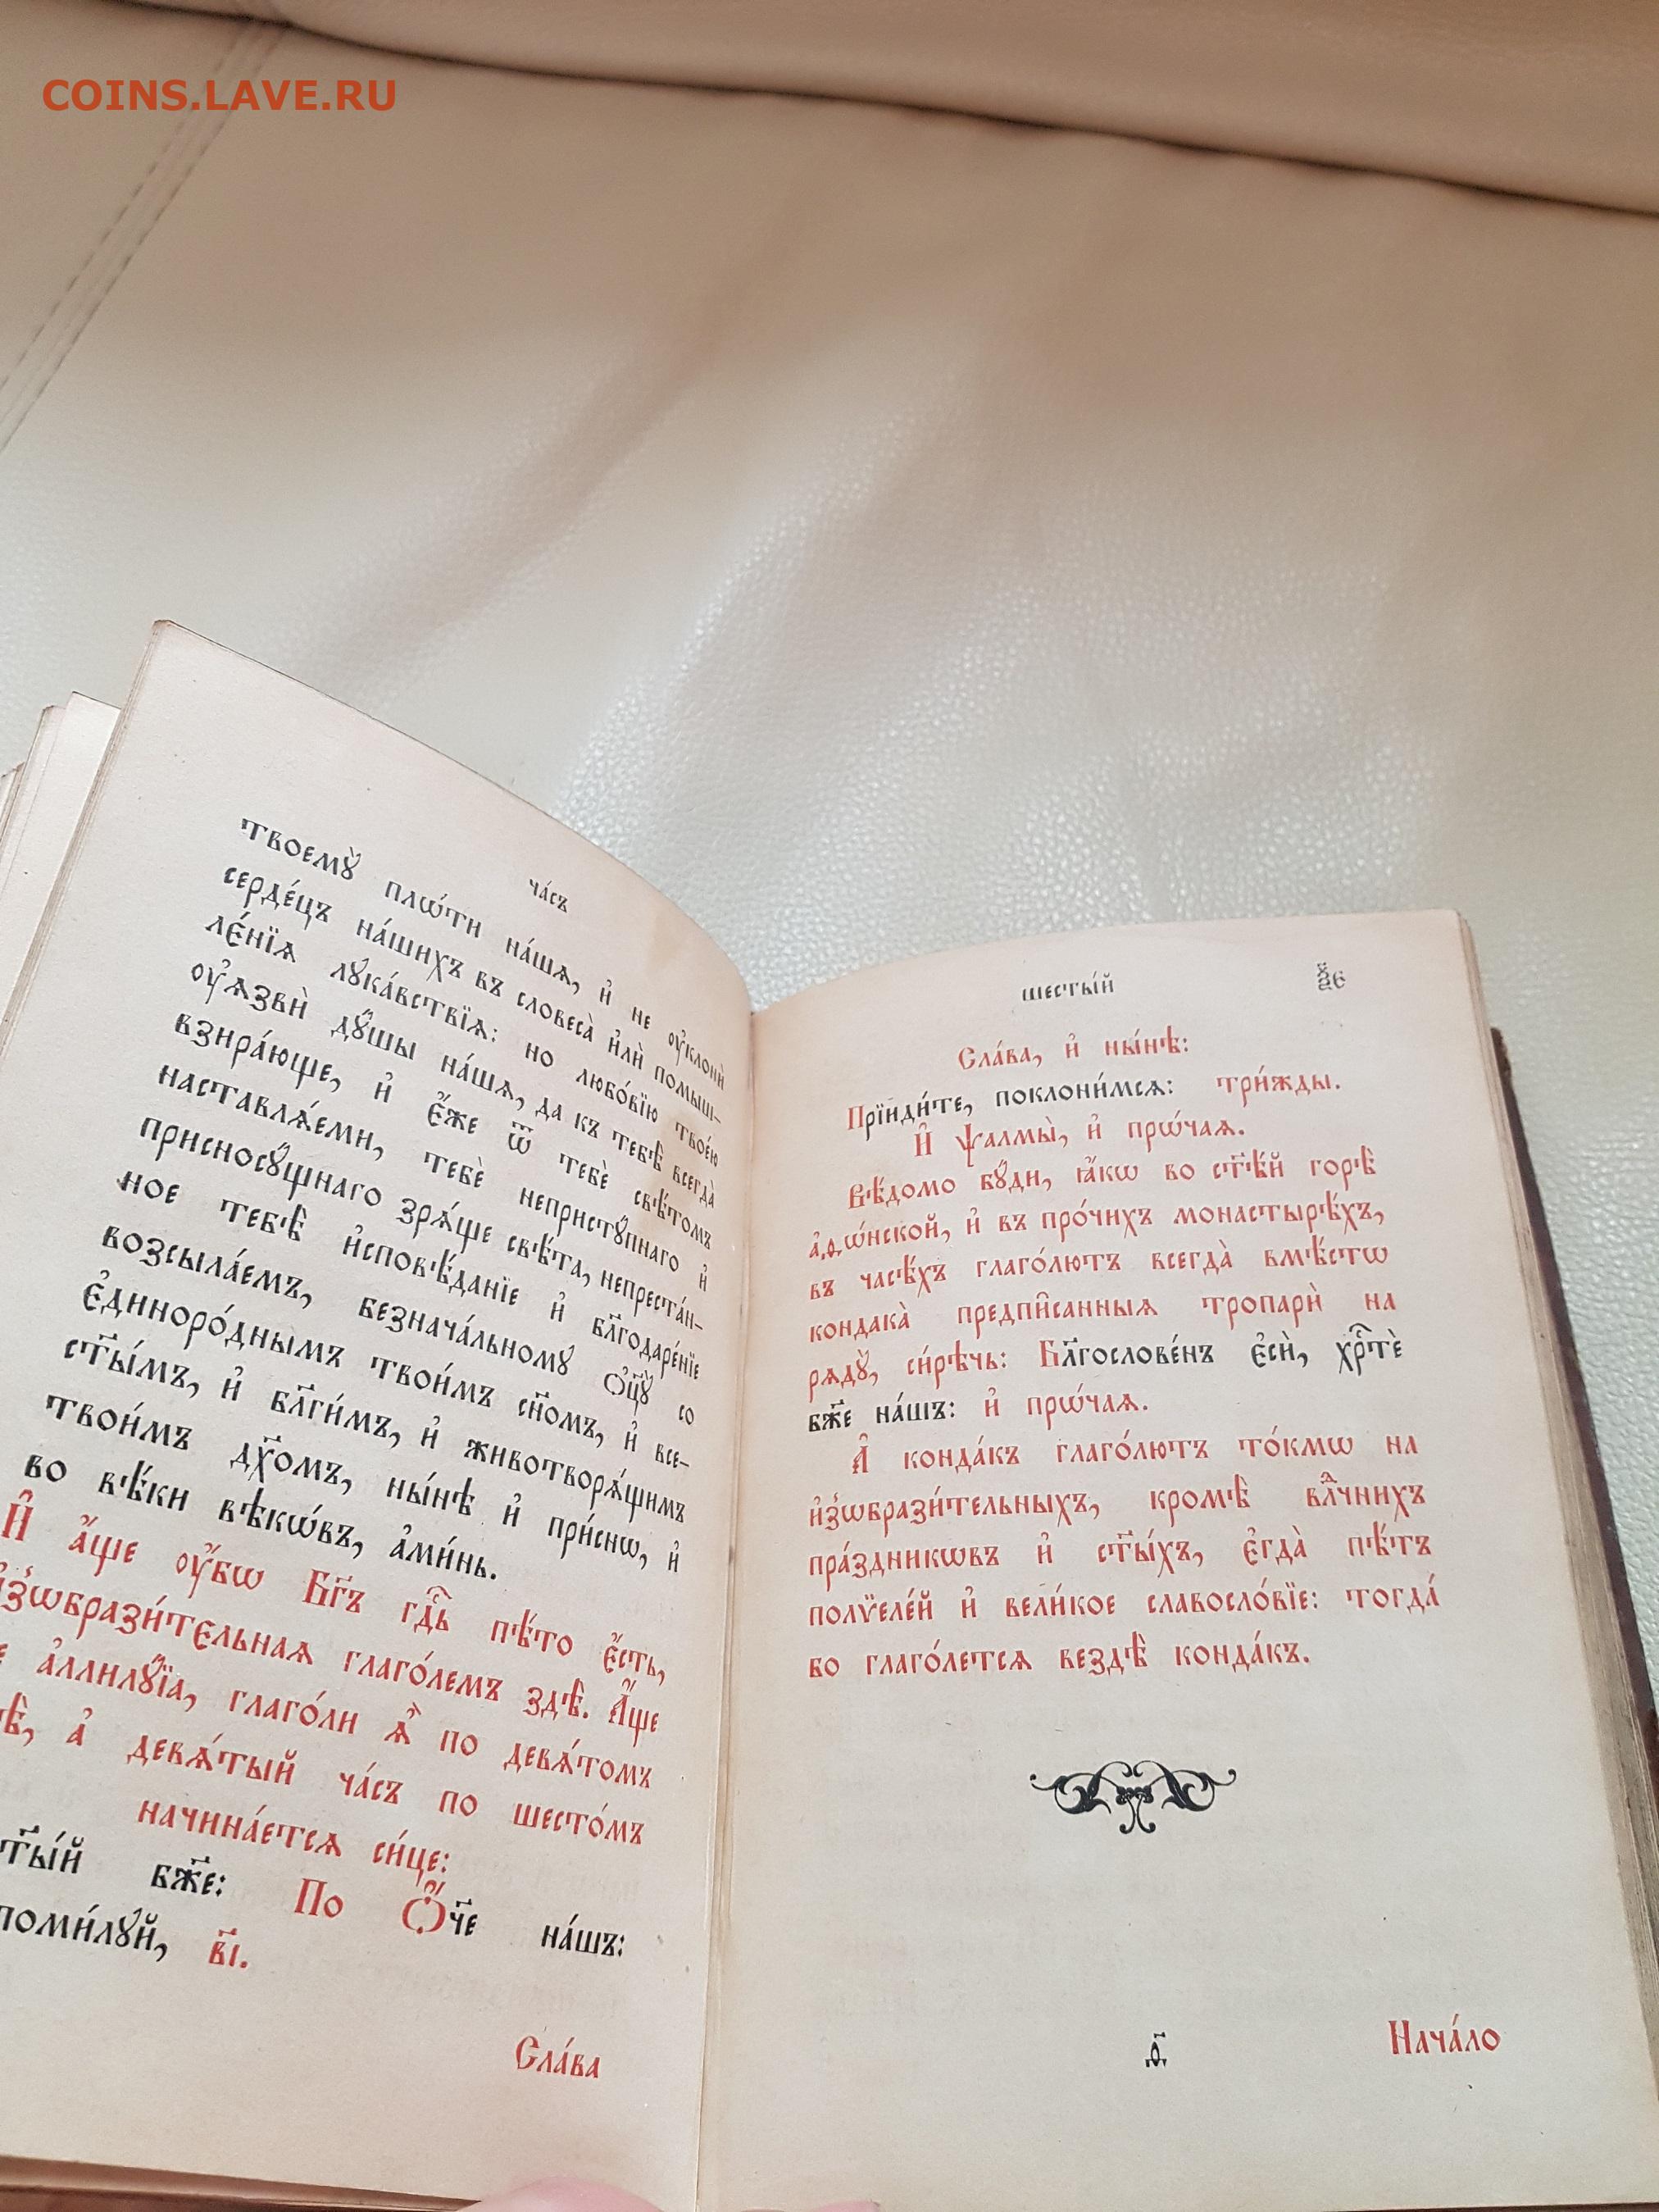 COINS.LAVE.RU
ча́съ
твоемꙋ̀ плѡ́ти на́шѧ, и҆ не ᲂу҆клонѝ
серде́цъ на́шихъ въ словеса̀ и҆лѝ помыш-
ле́нїѧ лꙋка́вствїѧ: но любо́вїю твое́ю
ᲂу҆ѧзвѝ дꙋ́шы на́шѧ, да къ тебѣ̀ всегда̀
взира́юще, и҆ є҆́же ѿ тебє̀ свѣ́томъ
наставлѧ́еми, тебѐ непристꙋ́пнаго и҆
присносꙋ́щнаго зрѧ́ще свѣ́та, непреста́н-
ное тебѣ̀ и҆сповѣ́данїе и҆ бл҃годаре́нїе
возсыла́емъ, безнача́льномꙋ ѻ҆ц҃ꙋ̀ со
є҆диноро́днымъ твои́мъ сн҃омъ, и҆ все-
ст҃ы́мъ, и҆ бл҃ги́мъ, и҆ животворѧ́щимъ
твои́мъ дх҃омъ, ны́нѣ и҆ при́снѡ, и҆
во вѣ́ки вѣкѡ́въ, а҆ми́нь.
И҆ а҆́ще ᲂу҆́бѡ Бг҃ъ гдⷭ҇ь пѣ́то є҆́сть,
и҆зѡбрази́тєльнаѧ глаго́лемъ здѣ̀. А҆́ще
а҆ллилꙋ́їа, глаго́ли ѧ҆̀ по девѧ́томъ
а҆ девѧ́тый ча́съ по шесто́мъ
начина́етсѧ си́це:
т҃ы́й бж҃е: По Ѻ҆́ч҃е на́шъ:
поми́лꙋй, в҃і.
Сла́ва
шесты́й
Сла́ва, и҆ ны́нѣ:
Прїиди́те, поклони́мсѧ: три́жды.
И҆ ѱалмы̀, и҆ прѡ́чаѧ.
Вѣ́домо бꙋ́ди, ꙗ҆́кѡ во ст҃ѣ́й горѣ̀
а҆ѳѡ́нской, и҆ въ про́чихъ монастырѣ́хъ,
въ часѣ́хъ глаго́лютъ всегда̀ вмѣ́стѡ
кондака̀ предпи̑санныѧ тропарѝ на
рѧдꙋ̀, си́рѣчь: Бл҃гослове́нъ є҆сѝ, хрⷭ҇тѐ
бж҃е на́шъ: и҆ прѡ́чаѧ.
А҆ конда́къ глаго́лютъ то́кмѡ на
и҆зѡбрази́тельныхъ, кромѣ̀ влⷣчнихъ
пра́здникѡвъ и҆ ст҃ы́хъ, є҆гда̀ пѣ́тъ
полѷеле́й и҆ вели́кое славосло́вїе: тогда́
бо глаго́летсѧ вездѣ̀ конда́къ.
д҃
Нача́ло